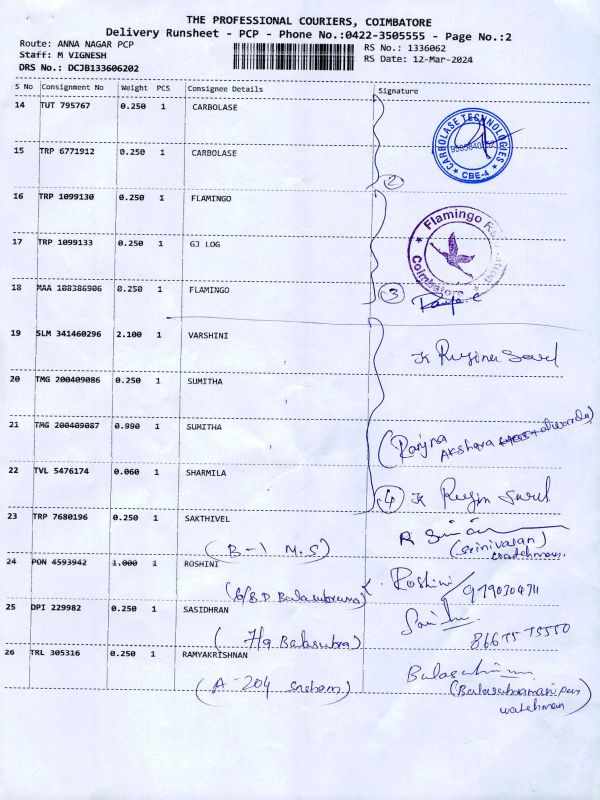 THE PROFESSIONAL COURIERS, COIMBATORE
Delivery Runsheet - PCP - Phone No.:0422-3505555 - Page No.:2
Route: ANNA NAGAR PCP
RS No.: 1336062
Staff: M VIGNESH
RS Date: 12-Mar-2024
DRS No.: DCJB133606202
S No Consignment No Weight PCS Consignee Details Signature
14 TUT 795767 0.250 1 CARBOLASE
CARBOLASE TECHNOLOGIES
CBE-4
15 TRP 6771912 0.250 1 CARBOLASE
2
16 TRP 1099130 0.250 1 FLAMINGO
Flamingo
Coimbatore
17 TRP 1099133 0.250 1 GJ LOG
18 MAA 108386906 0.250 1 FLAMINGO
3
19 SLM 341460296 2.100 1 VARSHINI
20 TMG 200409086 0.250 1 SUMITHA
21 TMG 200409087 0.990 1 SUMITHA
(Ranjna
Akshara
22 TVL 5476174 0.060 1 SHARMILA
4
23 TRP 7680196 0.250 1 SAKTHIVEL
(B-1 M.S)
(Srinivasan)
watchman
24 PON 4593942 1.000 1 ROSHINI
Roshini
9790304711
25 DPI 229982 0.250 1 SASIDHRAN
86675-75550
26 TRL 305316 0.250 1 RAMYAKRISHNAN
(A-204
watchman)